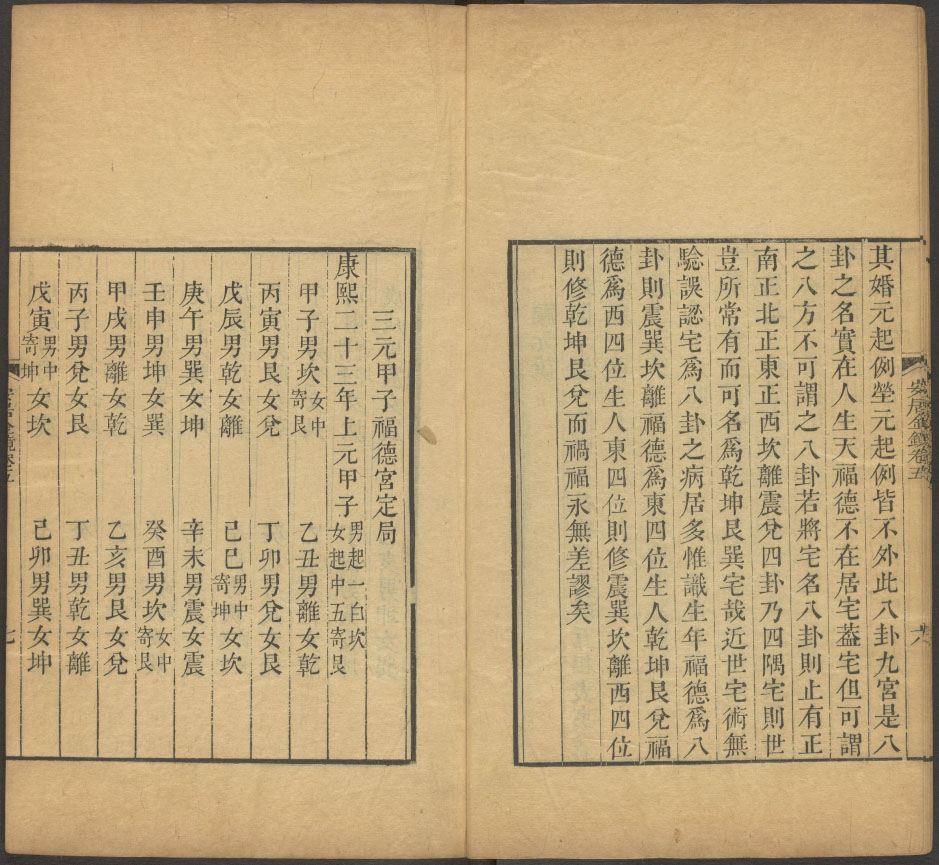 其婚元起例塋元起例皆不外此八卦九宮是八
卦之名實在人生天福德不在居宅葢宅但可謂
之八方不可謂之八卦若將宅名八卦則止有正
南正北正東正西坎離震兌四卦乃四隅宅則世
豈所常有而可名爲乾坤艮巽宅哉近世宅術無
驗誤認宅爲八卦之病居多惟識生年福德爲八
卦則震巽坎離福德爲東四位生人乾坤艮兌福
德爲西四位生人東四位則修震巽坎離西四位
則修乾坤艮兌而禍福永無差謬矣
三元甲子福德宮定局
康熙二十三年上元甲子 男起一白坎 女起中五寄艮
甲子男坎 女中寄艮 乙丑男離女乾
丙寅男艮女兌 丁卯男兌女艮
戊辰男乾女離 己巳 男中寄坤 女坎
庚午男巽女坤 辛未男震女震
壬申男坤女巽 癸酉男坎 女中寄艮
甲戌男離女乾 乙亥男艮女兌
丙子男兌女艮 丁丑男乾女離
戊寅 男中寄坤 女坎 己卯男巽女坤
七